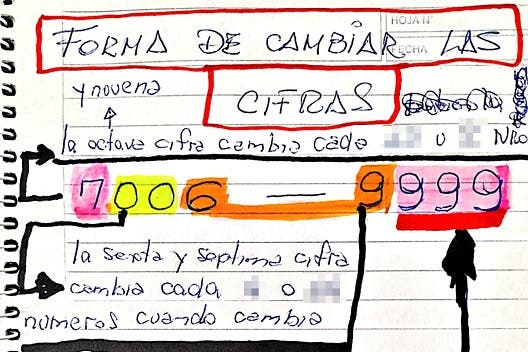 HOJA Nº
FECHA
FORMA DE CAMBIAR LAS
CIFRAS
y novena
la octava cifra cambia cada o NRO
7006 — 9999
la sexta y septima cifra
cambia cada o
numeros cuando cambia